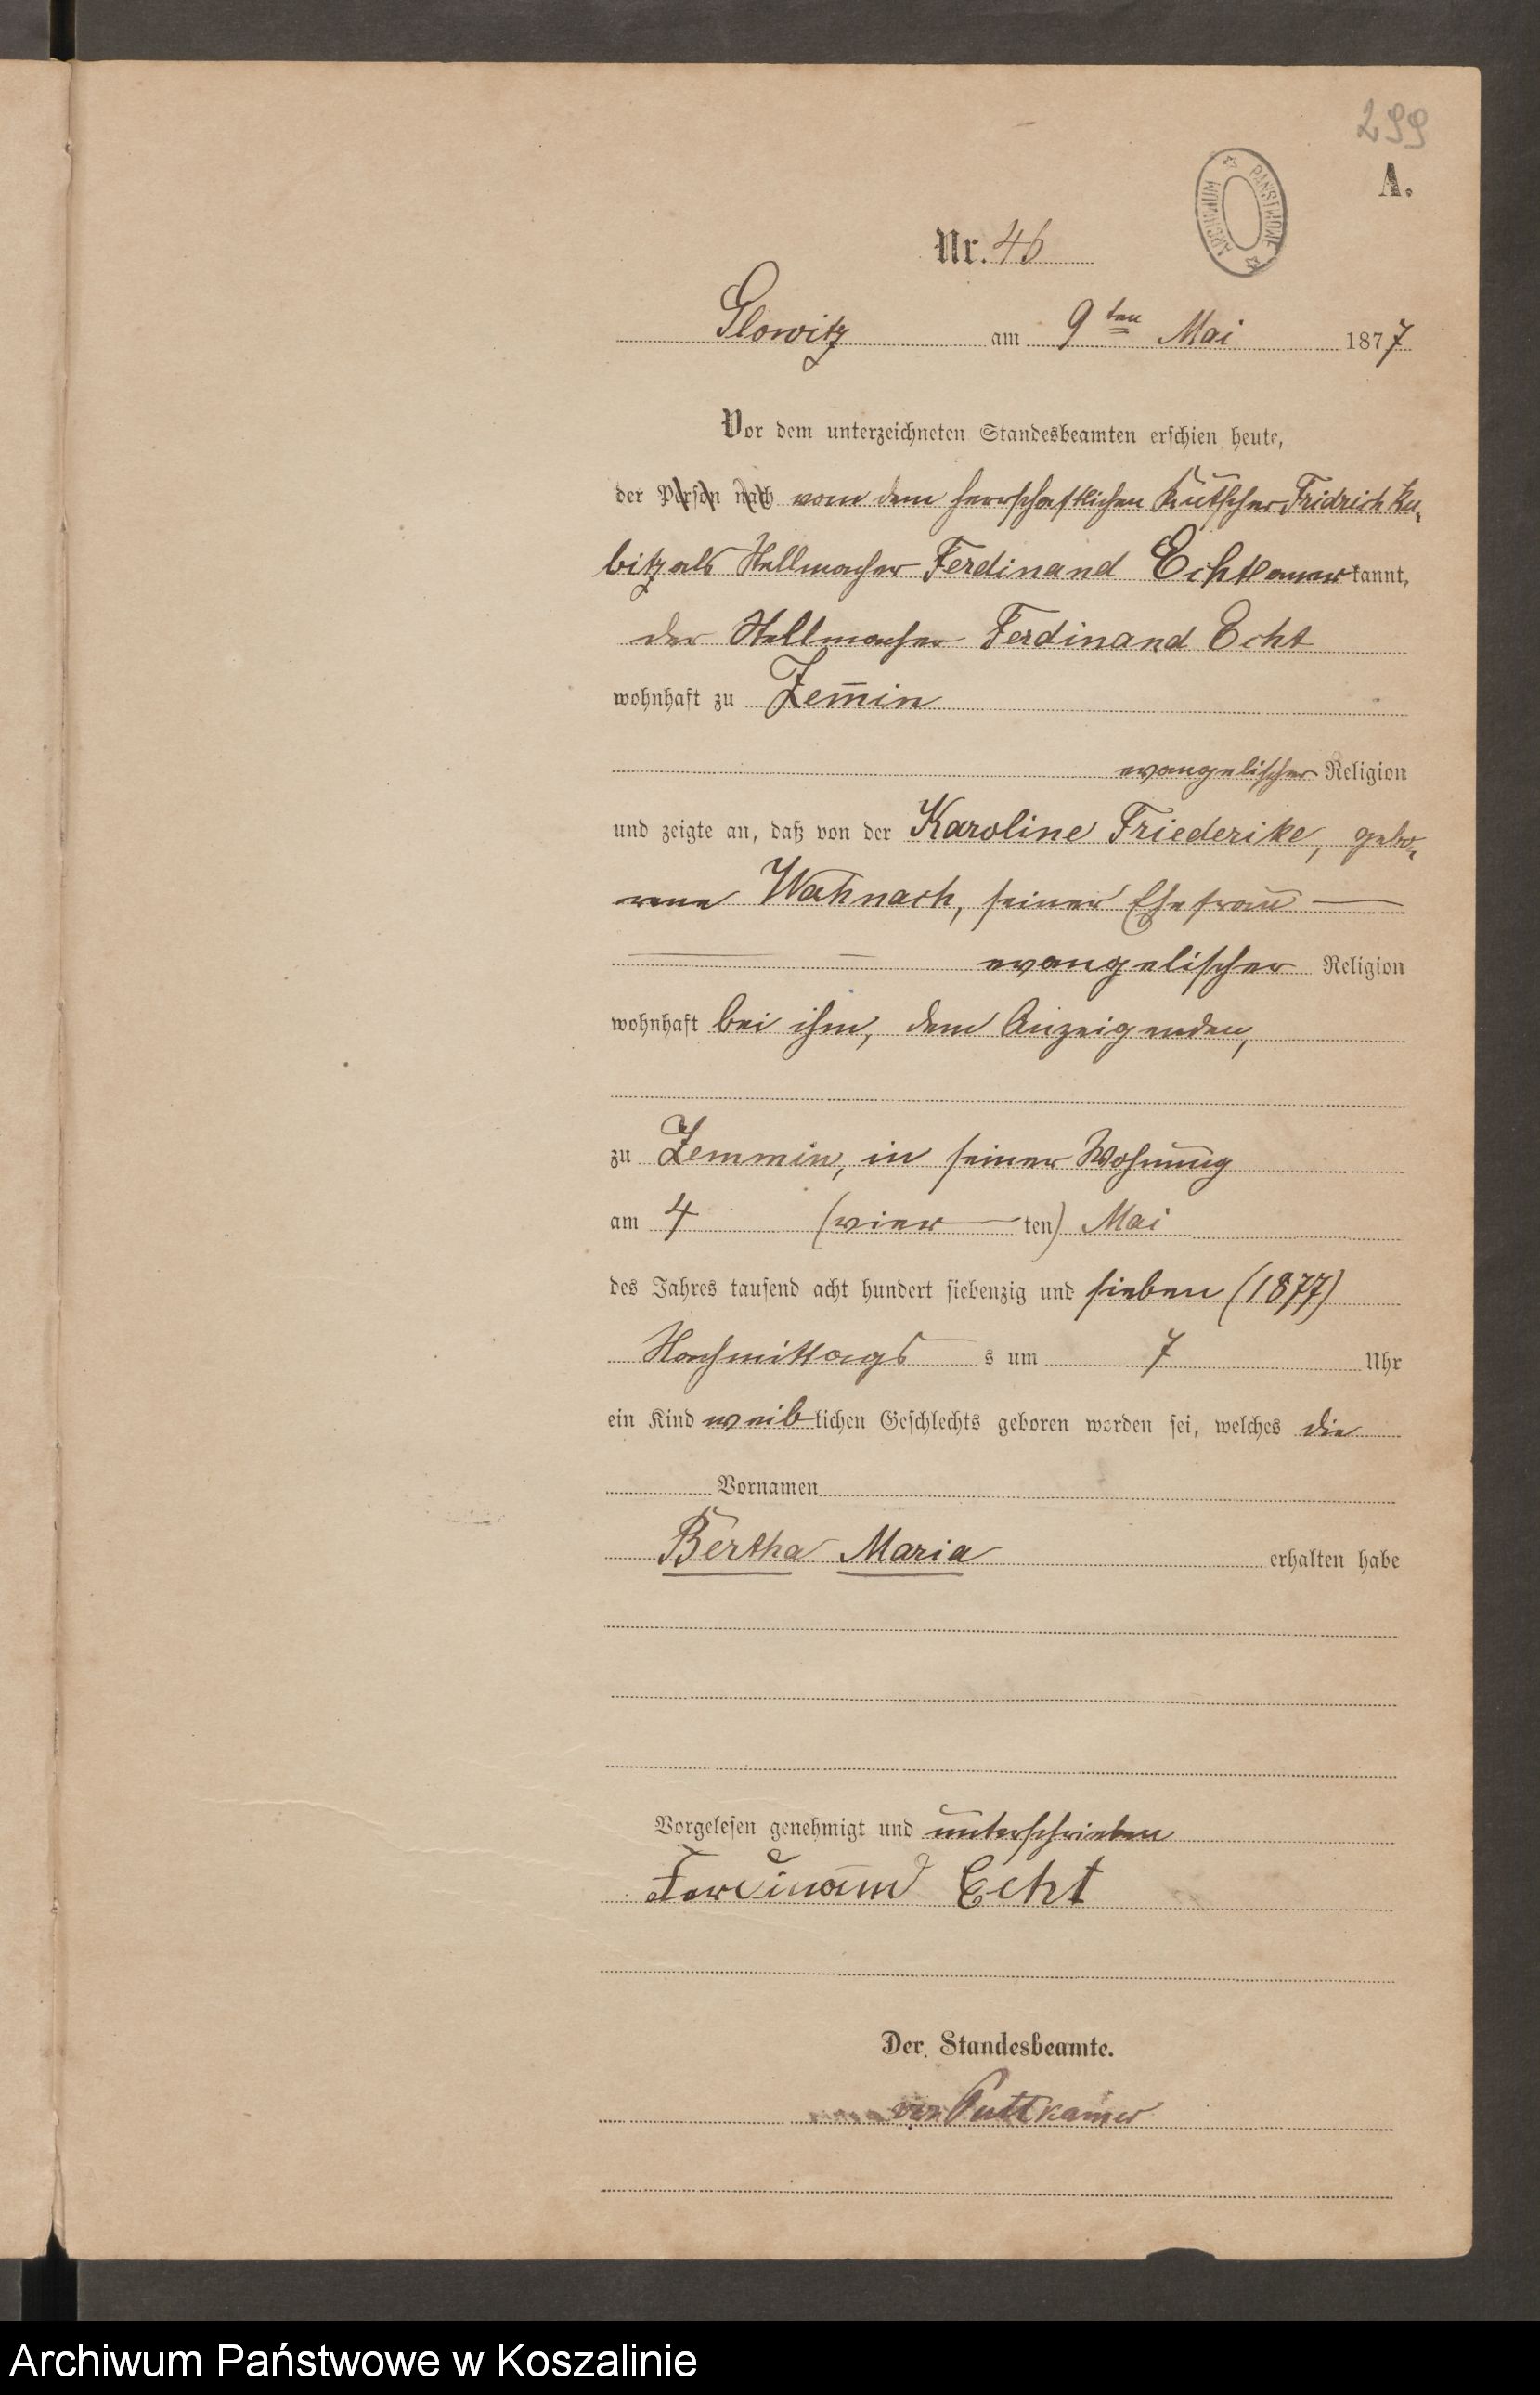 299
A.
ARCHIWUM PAŃSTWOWE
Nr. 46
Glowitz am 9ten Mai 1877
Vor dem unterzeichneten Standesbeamten erschien heute,
der Person nach von dem herrschaftlichen Kutscher Fridrich Ku-
bitz als Stellmacher Ferdinand Echt anerkannt,
der Stellmacher Ferdinand Echt
wohnhaft zu Zem̅in
evangelischer Religion
und zeigte an, daß von der Karoline Friederike, gebo-
rene Wahnach, seiner Ehefrau
evangelischer Religion
wohnhaft bei ihm, dem Anzeigenden,
zu Zemmin, in seiner Wohnung
am 4 (vier ten) Mai
des Jahres tausend acht hundert siebenzig und sieben (1877)
Nachmittags s um 7 Uhr
ein Kind weiblichen Geschlechts geboren worden sei, welches die
Vornamen
Bertha Maria erhalten habe
Vorgelesen genehmigt und unterschrieben
Ferdinand Echt
Der Standesbeamte.
von Puttkamer
Archiwum Państwowe w Koszalinie